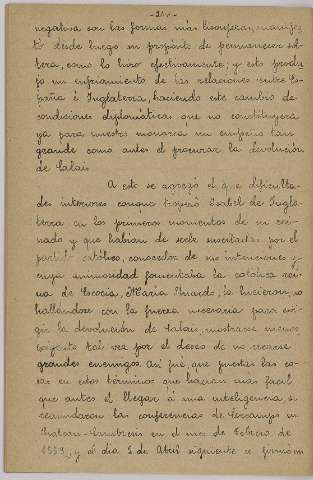 -211-
negativa con las formas más lisonjeras, manifes
tó desde luego su propósito de permanecer sol-
tera, como lo hizo efectivamente; y esto produ
jo un enfriamiento de las relaciones entre Es-
paña é Inglaterra, haciendo este cambio de
condiciones diplomáticas que no constituyera
ya para nuestro monarca un empeño tan
grande como antes el procurar la devolución
de Calais.
A esto se agregó el que dificulta-
des interiores conque tropezó Isabel de Ingla-
terra en los primeros momentos de su rei-
nado y que habían de serle suscitadas por el
partido católico, conocedor de sus intenciones y
cuya animosidad fomentaba la católica rei-
na de Escocia, María Stuardo, la hicieron, no
hallándose con la fuerza necesaria para exi-
gir la devolución de Calais, mostrarse menos
exigente tal vez por el deseo de no crearse
grandes enemigos. Así fué, que puestas las co-
sas en estos términos que hacían más fácil
que antes el llegar á una inteligencia, se
reanudaron las conferencias de Cercamps en
Chateau-Cambresis en el mes de Febrero de
1559, y el día 2 de Abril siguiente se firmaron